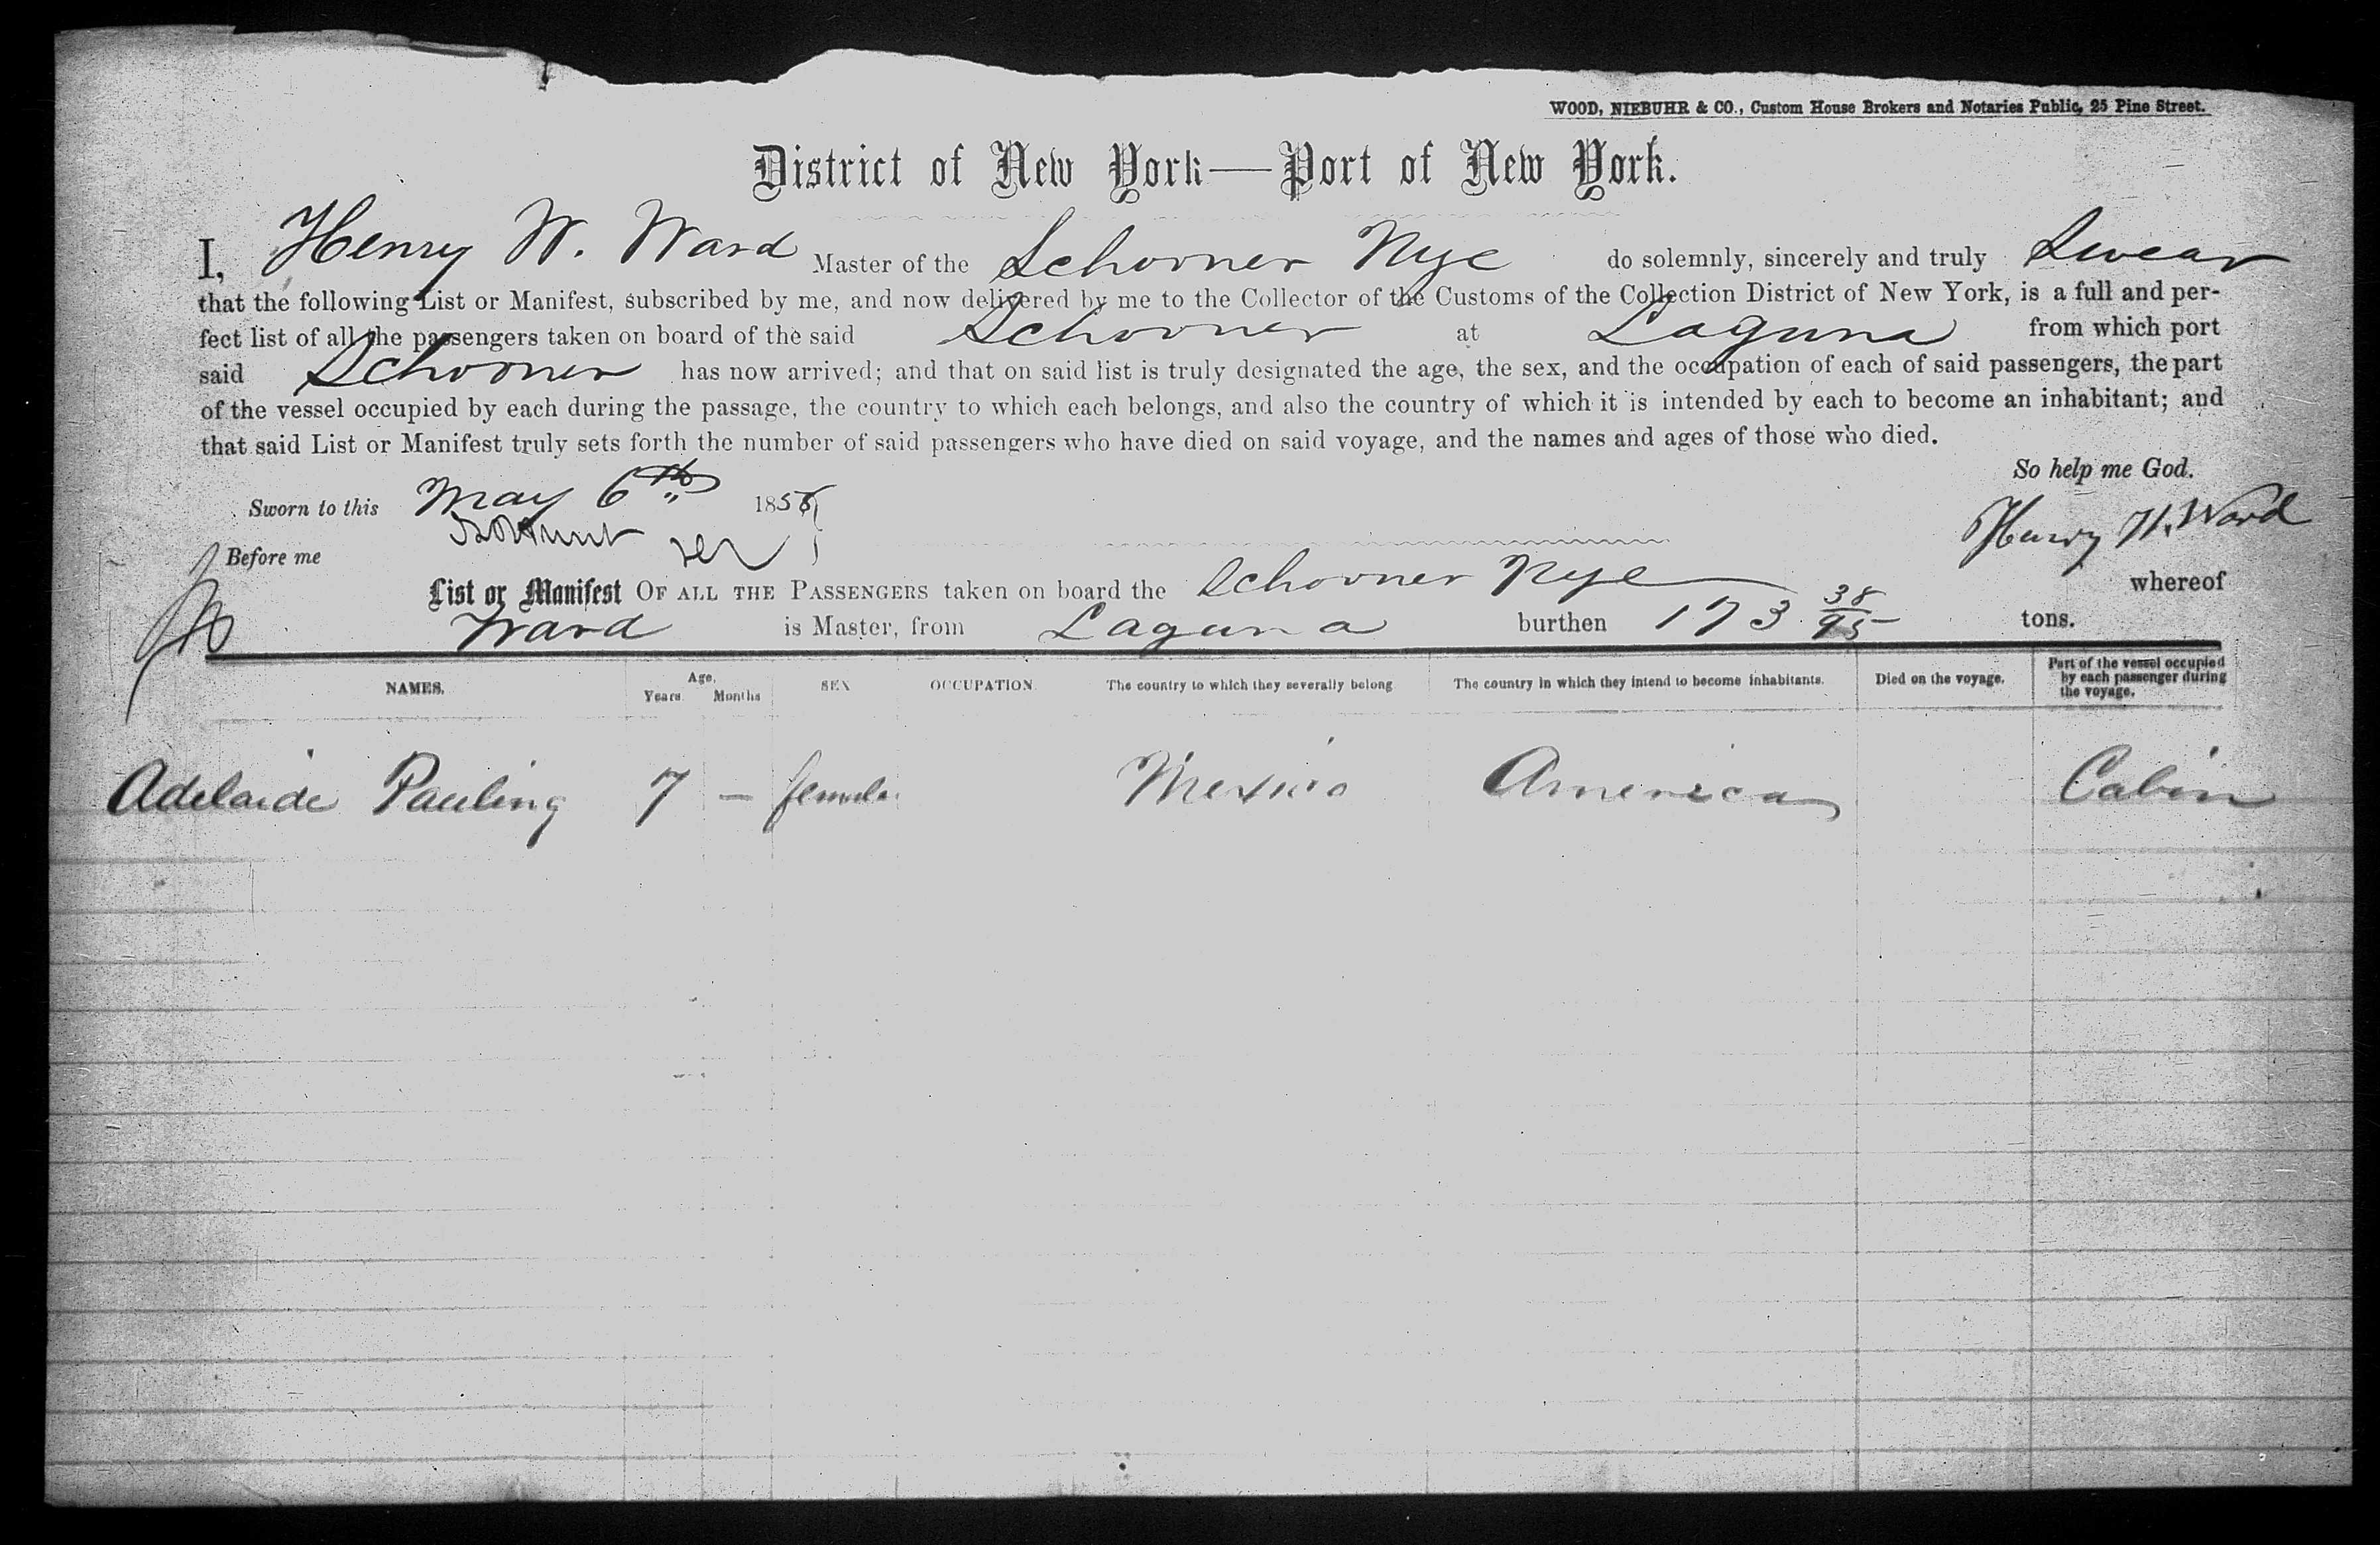 WOOD, NIEBUHR & CO., Custom House Brokers and Notaries Public, 25 Pine Street.
District of New York—Port of New York.
I, Henry W. Ward Master of the Schooner Nye do solemnly, sincerely and truly Swear
that the following List or Manifest, subscribed by me, and now delivered by me to the Collector of the Customs of the Collection District of New York, is a full and per-
fect list of all the passengers taken on board of the said Schooner at Laguna from which port
said Schooner has now arrived; and that on said list is truly designated the age, the sex, and the occupation of each of said passengers, the part
of the vessel occupied by each during the passage, the country to which each belongs, and also the country of which it is intended by each to become an inhabitant; and
that said List or Manifest truly sets forth the number of said passengers who have died on said voyage, and the names and ages of those who died.
So help me God.
Sworn to this May 6th 185
Henry W. Ward
Before me
List or Manifest OF ALL THE PASSENGERS taken on board the Schooner Nye whereof
Ward is Master, from Laguna burthen 173 38/95 tons.
NAMES. Age. Years. Months SEX OCCUPATION. The country to which they severally belong The country in which they intend to become inhabitants. Died on the voyage. Part of the vessel occupied by each passenger during the voyage.
Adelaide Pauling 7 — female Mexico America Cabin